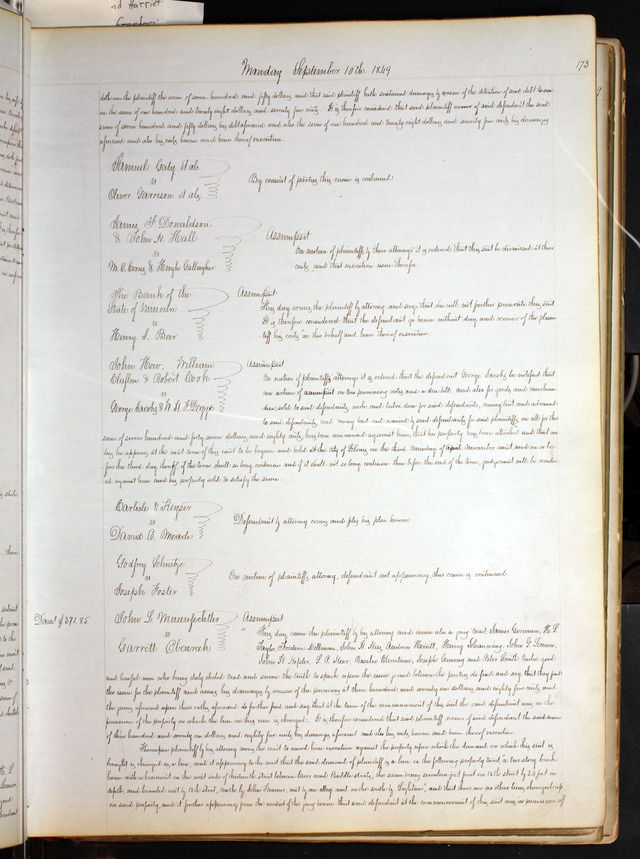 nd Harriet
Monday September 10th 1849
173
doth owe the plaintiff the sum of seven hundred and fifty dollars and that said plaintiff hath sustained damages by reason of the detention of said debt to
in the sum of one hundred and twenty eight dollars and seventy four cents. It is therefore considered that said plaintiff recover of said defendant the said
sum of seven hundred and fifty dollars his debt aforesaid and also the sum of one hundred and twenty eight dollars and seventy four cents his damages
aforesaid and also his costs herein and have thereof execution.
Samuel Gaty et al.
vs
Oliver Garrison et als.
By consent of parties this cause is continued
James F Donaldson
& John H. Hall
vs
& Hugh Gallagher
Assumpsit
On motion of plaintiffs by their attorney it is ordered that this suit be dismissed at their
costs and that execution issue therefor.
The Bank of the
State of Missouri
vs
Henry I. Bear
Assumpsit
This day comes the plaintiff by attorney and says that she will not further prosecute this suit
It is therefore considered that the defendant go hence without day and recover of the plain-
tiff his costs in this behalf and have thereof execution.
John How, William
Claflin & Robert Cook
vs
George Jacobs & W. H. F. Gegge
Assumpsit
On motion of plaintiffs attorney it is ordered that the defendant George Jacobs be notified that
an action of assumpsit on two promissory notes and a due bill, and also for goods and merchan-
dise sold to said defendants, work and labor done for said defendants, money lent and advanced
to said defendants, and money had and received by said defendants for said plaintiffs, in all for the
sum of seven hundred and forty seven dollars and eighty cents, has been commenced against him, that his property has been attached and that un-
less he appears at the next term of this court to be begun and held at the city of St Louis, on the third Monday of November next, and on or be-
fore the third day thereof, if the term shall so long continue and if it shall not so long continue then before the end of the term, judgment will be render-
ed against him and his property sold to satisfy the same.
vs
David A. Meade
Defendant by attorney comes and files his plea herein
Godfrey
vs
Joseph Foster
On motion of plaintiffs attorney, defendant not appearing, this cause is continued
Dam. $371.85
John G.
vs
Garrett
Assumpsit
This day came the plaintiff by his attorney and came also a jury to wit, James Gorman,
John G
John H. Joseph and Peter Smith twelve good
and lawful men who being duly elected tried and sworn the truth to speak upon the issue joined between the parties do find and say that they find
the issue for the plaintiff and assess his damages by reason of the premises at three hundred and seventy one dollars and eighty five cents, and
the jurors aforesaid upon their oaths aforesaid do further find and say that at the time of the commencement of this suit the said defendant was in the
possession of the property on which the lien in this case is charged. It is therefore considered that said plaintiff recover of said defendant the said sum
of three hundred and seventy one dollars and eighty five cents his damages aforesaid and also his costs herein and have thereof execution
Thereupon plaintiff by his attorney moves the court to award him execution against the property upon which the demand on which this suit is
brought is charged as a lien, and it appearing to the court that the said demand of plaintiff is a lien on the following property to wit a two story brick
house with a basement on the west side of thirteenth street between
depth, and bounded east by 13th street, north by west by an alley and on the south by and that there are no other liens charged up-
on said property, and it further appearing from the verdict of the jury herein that said defendant at the commencement of this suit was in possession of